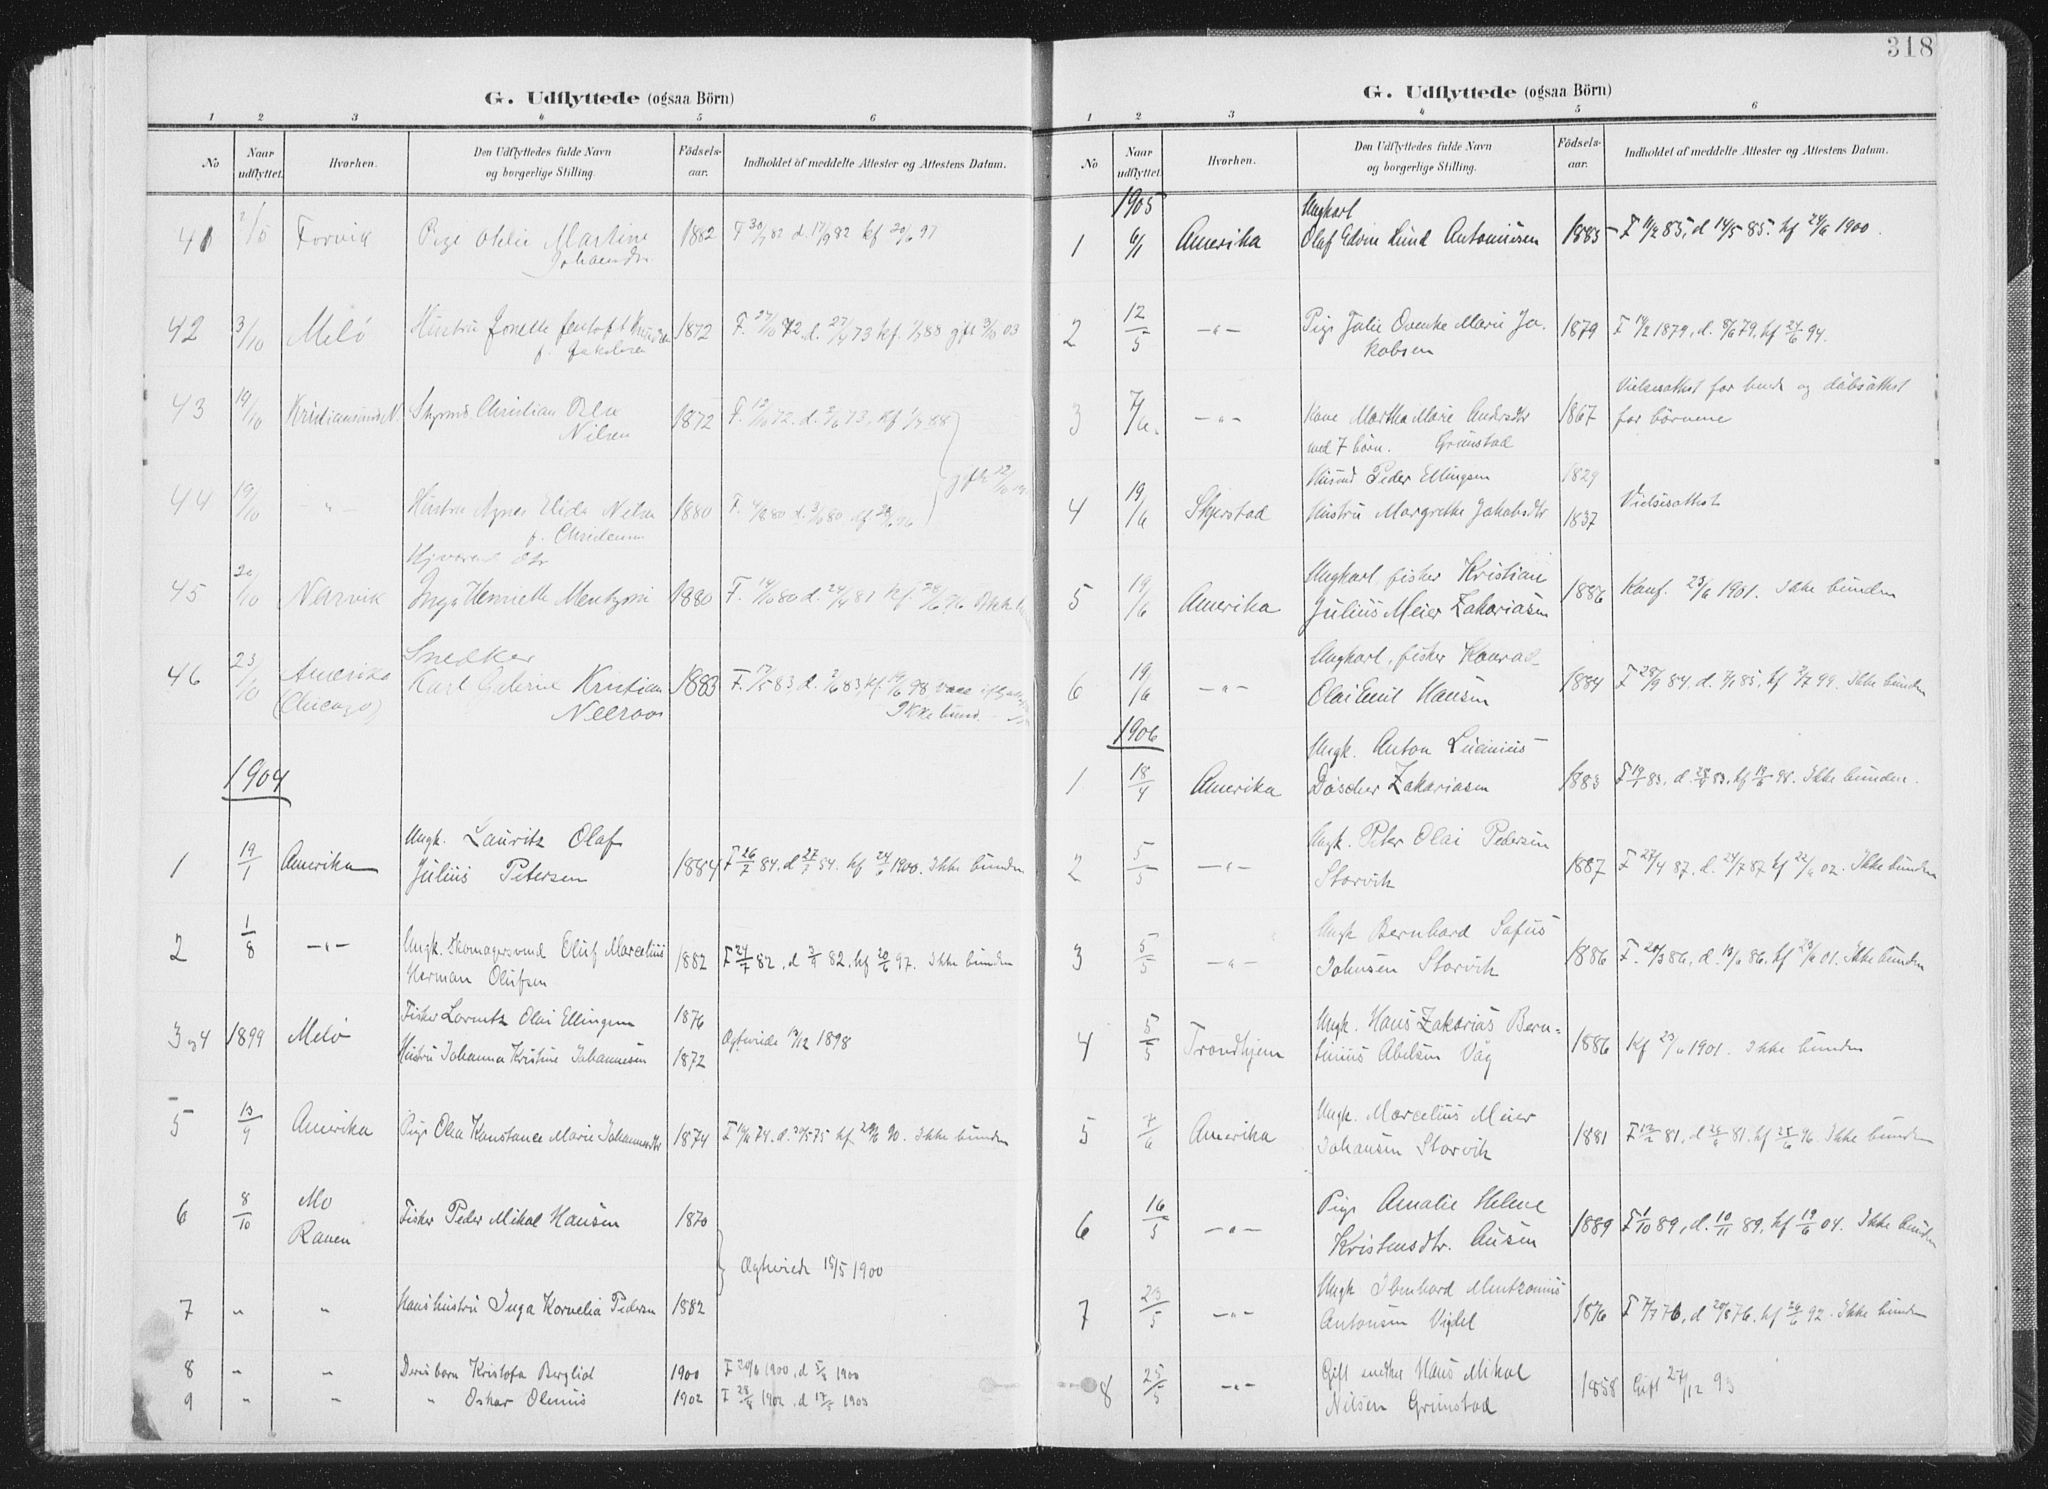 318
G. Udflyttede (ogsaa Börn)
1 2 3 4 5 6
No
Naar udflyttet.
Hvorhen.
Den Udflyttedes fulde Navn og borgerlige Stilling.
Födsels-aar.
Indholdet af meddelte Attester og Attestens Datum.
41 Forvik Pige Martine 1882 F 30/7 82 d. 17/9 82 kf 20/6 97
42 3/10 Melö Hustru Jonette 1872 F. 27/10 72. d. 27/4 73 kf. 1/7 88 gft 3/10 03
f. Jakobsen
43 19/10 Kristiansund N. Christian 1872 F. 12/10 72. d. 2/6 73, kf 1/7 88
Nilsen
44 19/10 -"- Hustru Agnes Elida Nilsen 1880
45 20/10 Narvik Inga Henriette 1880 F. 14/10 80 d. 24/4 81 kf.
Snedker
46 23/10 Amerika Karl Gabriel Kristian 1883 F. 17/5 83, d. 3/6 83 kf. 19/6 98
(Chicago) Neeraas Ikke bund.
1904
Ungk. Lauritz Olaf
1 19/1 Amerika Julius Petersen 1884 F 26/2 84. d 27/7 84. kf 24/6 1900. Ikke bunden
2 1/8 -"- Ungk. Skomagersvend Oluf Marcelius 1882 F 24/7 82, d 3/9 82, kf 20/6 97. Ikke bunden
Herman Olufsen
Fisker Lorentz Olai Ellingsen 1876
3 og 4 1899 Melö Ægteviede 13/12 1898
Hustru Johanna Kristine Johannesen 1872
5 13/9 Amerika Pige Olea Konstance Marie Johannesdtr 1874 Ikke bunden
6 8/10 Mo Fisker Peder Mikal Hansen 1870
Ranen
Ægteviede 15/5 1900
7 " " Hans hustru Inga Kornelia Pedersen 1882
8 " " Deres barn Kristofa Bergliot 1900 F 30/6 1900, d 5/8 1900
9 " " " Oskar Olenius 1902 F 28/8 1902, d 17/5 1903
G. Udflyttede (ogsaa Börn)
1 2 3 4 5 6
No
Naar udflyttet.
Hvorhen.
Den Udflyttedes fulde Navn og borgerlige Stilling.
Födsels-aar.
Indholdet af meddelte Attester og Attestens Datum.
1905
Ungkarl
1 6/1 Amerika Olaf Edvin Lund Antoniusen 1885 F 11/2 85, d 14/5 85. kf 24/6 1900.
2 12/5 -"- Pige Julie Ovenke Marie Ja- 1879 F 14/2 1879, d. 8/6 79, kf 24/6 94.
kobsen
Vielsesattest for hende og dåbsattest
3 7/6 -"- Kone Martha Marie Andersdtr 1867 for börnene
med 7 börn. Grimstad
Husmd Peder Ellingsen 1829
4 19/6 Skjerstad Hustru Margrethe Jakobsdtr 1837 Vielsesattest
Ungkarl, fisker Kristian
5 19/6 Amerika Julius Meier Zakariasen 1886 Konf. 23/6 1901. Ikke bunden
Ungkarl, fisker Konrad
6 19/6 -"- Olai Emil Hansen 1884 F 28/9 84, d. 1/1 85, kf 2/7 99. Ikke bunden
1906
Ungk. Anton Lucinius
1 18/4 Amerika Döscher Zakariasen 1883 F 19/7 83, d. 28/9 83, kf 19/6 98. Ikke bunden.
Ungk. Peter Olai Pedersen
2 5/5 -"- Storvik 1887 F 27/4 87, d. 24/7 87 kf 22/6 02. Ikke bunden
Ungk Bernhard Sofus
3 5/5 -"- Johnsen Storvik 1886 F. 20/3 86, d. 13/6 86, kf 23/6 01. Ikke bunden
Ungk. Hans Zakarias Bern-
4 5/5 Trondhjem tinius Abelsen Våg 1886 kf 23/6 1901. Ikke bunden
Ungk. Marcelius Meier
5 7/6 Amerika Johansen Storvik 1881 F 13/2 81, d 24/4 81, kf 28/6 96. Ikke bunden
Pige Amalie Helene
6 16/5 -"- Kristensdtr. Ausen 1889 F 1/10 89, d. 10/11 89, kf 19/6 04. Ikke bunden
Ungk Ibenhard Mentzonius
7 23/5 -"- Antonsen Vigdel 1876 F 7/7 76, d 20/8 76, kf 26/6 92. Ikke bunden
Gift Hans Mikal
8 25/5 -"- Nilsen Grimstad 1858 Gift 27/12 93